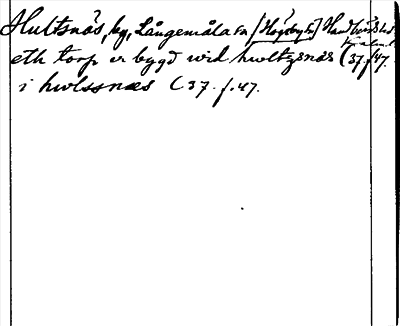 Hultsnäs, by, Långemåla sn [Högsby sn] Handbörds hd
Kalmar
eth torp er bygd wid hwltzsnäs (37. f. 47.
i hwlssnæs (37. f. 47.